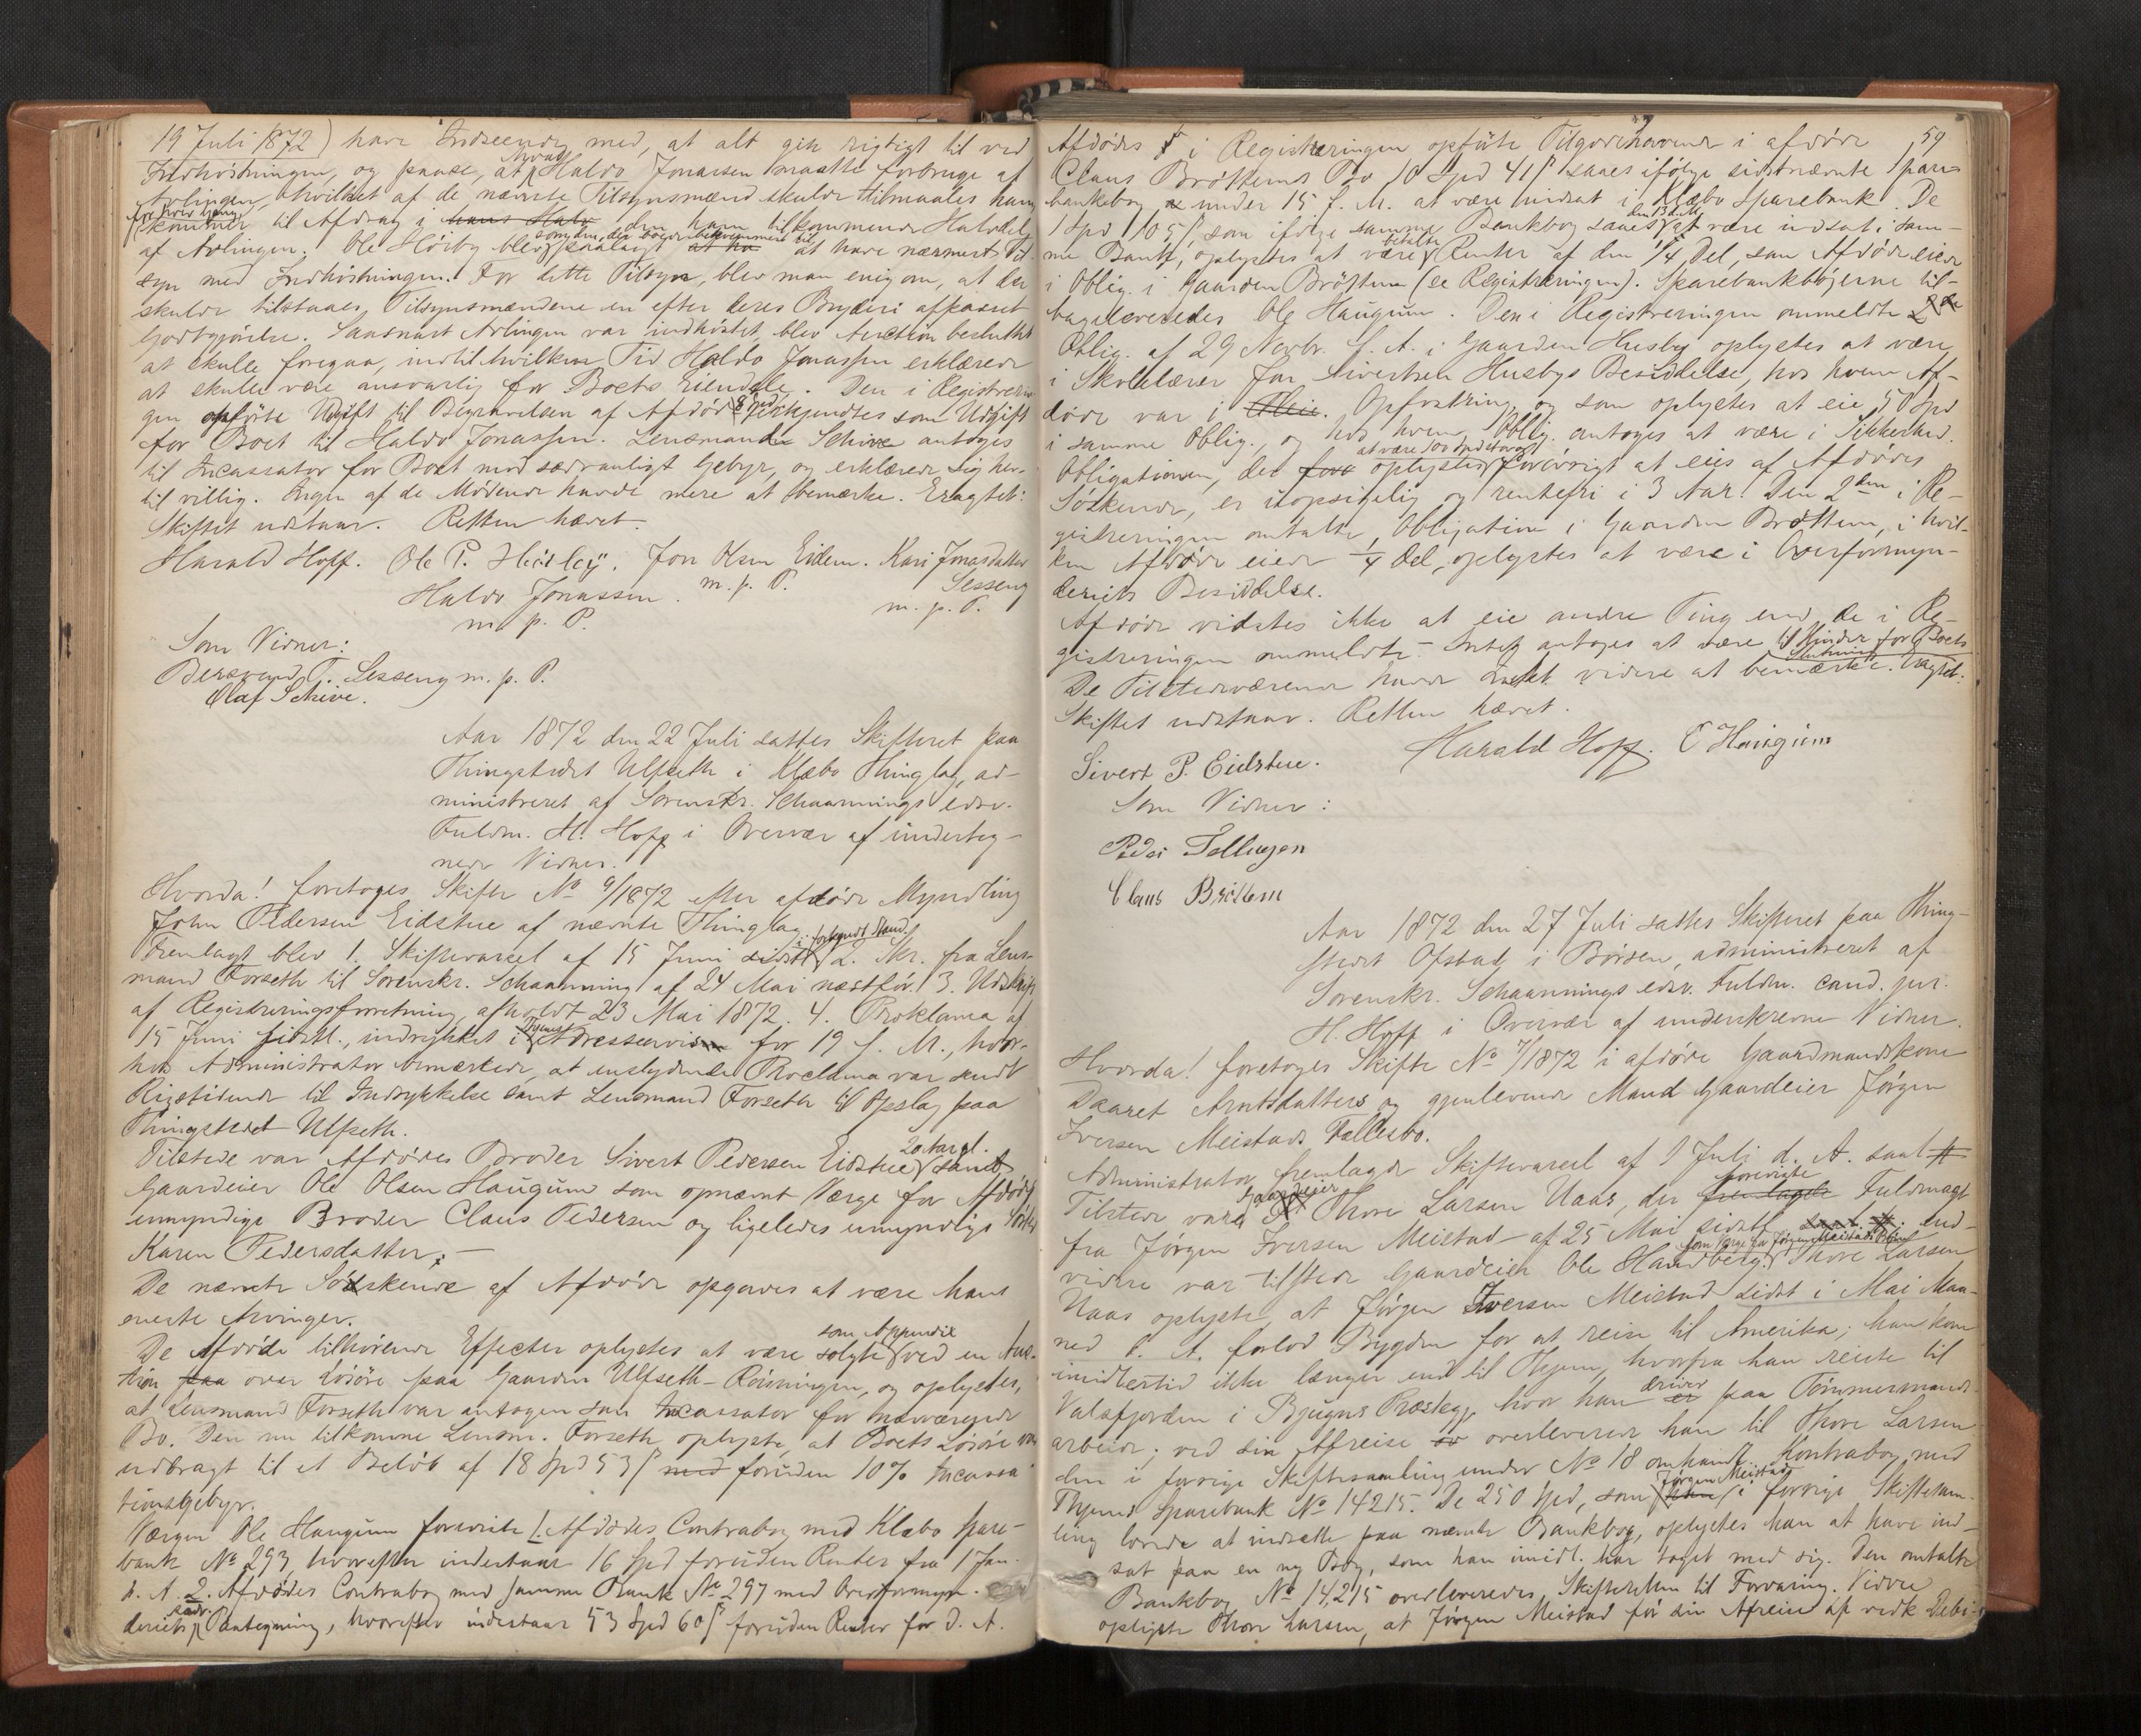 19 Juli 1872) have Indseende med, at alt gik rigtigt til ved
Indhöstningen, og paase, at hvad Haldo Jonassen maatte forbruge af
Avlingen, hvilket af de nævnte Tilsynsmænd skulde tilmaales ham
for hver Gang, kommer til Afdrag i hans Halv den ham tilkommende Halvdel
af Avlingen. Ole Hörby blev paalagt at ha at have nærmest Til-
syn med Indhöstningen. For dette Tilsyn, blev man enig om, at der
skulde tilstaaes Tilsynsmændene en efter deres Bryderi afpasset
Godtgjörelse. Saasnart Avlingen var indhöstet, blev Auction besluttet
at skulle foregaa, indtil hvilken Tid Haldo Jonassen erklærede
at skulle være ansvarlig for Boets Eiendele. Den i Registrerin-
gen opförte Udgift til Begravelsen af Afdöde 8 Spd erkjendtes som Udgift
for Boet til Haldo Jonassen. Lensmand Schive antoges
til Incassator for Boet mod sædvanligt Gebyr, og erklærede sig her-
til villig. Ingen af de Mödende havde mere at bemærke. Eragtet:
Skiftet udstaar. Retten hævet.
Harald Hoff. Ole P. Heidley. Jon Olsen Eidem. Kari Jonasdatter
Haldo Jonassen. m. p. P. Sesseng
m. p. P. m. p. P.
Som Vidner:
Beresvend T. Sesseng m. p. P.
Olaf Schive.
Aar 1872 den 22 Juli sattes Skifteret paa
Thingstedet Ulfseth i Klæbo Thinglag, ad-
ministreret af Sorenskr. Schaannings edsv.
Fuldm. H. Hoff i Overvær af underteg-
nede Vidner.
Hvorda! foretoges Skifte No 9/1872 efter afdöde Myndling
John Pedersen Eidstue af nævnte Thinglag.
Fremlagt blev 1. Skiftevarsel af 15 Juni sidstl. i forkyndt Stand. 2. Skr. fra Lens-
mand Forseth til Sorenskr. Schaanning af 24 Mai næstfór. 3. Udskrift
af Registreringsforretning, afholdt 23 Mai 1872. 4. Proklama af
15 Juni sidstl., indrykket i Thjems Adresseavis for 19 s. M., hvor-
hos Administrator bemærkede, at enslydende Proclama var sendt
Rigstidende til Indrykkelse samt Lensmand Forseth til Opslag paa
Thingstedet Ulfseth.
Tilstede var Afdödes Broder Sivert Pedersen Eidstue 20 Aar gl. samt
Gaardeier Ole Olsen Haugum som opnævnt Værge for Afdödes
umyndige Broder Claus Pedersen og ligeledes umyndige Söster
Karen Pedersdatter. –
De nævnte Södskende af Afdöde opgaves at være hans
eneste Arvinger.
De Afdöde tilhörende Effecter oplystes at være solgte som Appendix ved en Auc-
tion paa over Lösöre paa Gaarden Ulfseth-Rönningen, og oplystes,
at Lensmand Forseth var antagen som Incassator for nærværende
Bo. Den nu tilkomne Lensm. Forseth oplyste, at Boets Lösöre var
udbragt til et Belöb af 18 Spd 53 ß med foruden 10% Incassa-
tionsgebyr.
Værgen Ole Haugum foreviste 1. Afdödes Contrabog med Klæbo Spare-
bank No 293, hvorefter indestaar 16 Spd foruden Renter fra 1 Jan.
d. A. 2. Afdödes Contrabog med samme Bank No 297 med Overformyn-
deriets sædv. Paategning, hvorefter indestaar 53 Spd 60 ß foruden Renter for d. A.
59
Afdödes i Registreringen opförte Tilgodehavende i afdöde
Claus Bröttems Bo 10 Spd 41 ß saaes ifölge sidstnævnte Spare-
bankbog under 15 f. M. at være indsat i Klæbo Sparebank. De
1 Spd 105 ß, som ifölge samme Bankbog saaes den 13 d. M. at være indsat i sam-
me Bank, oplystes at være betalte Renter af den 1/4 Del, som Afdöde eier
i Oblig. i Gaarden Bröttem (se Registreringen). Sparebankbögerne til-
bageleveredes Ole Haugum. Den i Registreringen ommeldte
Oblig. af 29 Novbr. f. A. i Gaarden Husby oplystes at være
i Skolelærer Jon Sivertsen Husbys Besiddelse, hos hvem Af-
döde var i Pleie. Opfostring, og som oplystes at eie 50 Spd
i samme Oblig., og hos hvem Oblig. antoges at være i Sikkerhed.
Obligationen, der forö oplystes at være 100 Spd stor og forövrigt at eies af Afdödes
Söskende, er uopsigelig og rentefri i 3 Aar. Den 2den i Re-
gistreringen omtalte Obligation i Gaarden Bröttem, i hvil-
ken Afdöde eiede 1/4 Del, oplystes at være i Overformyn-
deriets Besiddelse.
Afdöde vidstes ikke at eie andre Ting end de i Re-
gistreringen ommeldte. – Intet antoges at være til Hinder for Boets
Slutning
De Tilstedeværende havde Intet videre at bemærke. Eragtet:
Skiftet udstaar. Retten hævet.
Sivert P. Eidstue. Harald Hoff. O Haugum
Som Vidner:
Peder Tellugen
Claus Bröttem
Aar 1872 den 27 Juli sattes Skifteret paa Thing-
stedet Ofstad i Börsen, administreret af
Sorenskr. Schaannings edsv. Fuldm. cand. jur.
H. Hoff i Overvær af underskrevne Vidner.
Hvorda! foretoges Skifte No 7/1872 i afdöde Gaardmandskone
Daaret Arntsdatters og gjenlevende Mand Gaardeier Jörgen
Iversen Meistads Fællesbo.
Administrator fremlagde Skiftevarsel af 1 Juli d. A. samt
Tilstede vare Gaardeier Thore Larsen Uaas, der fremlagde foreviste Fuldmagt
fra Jörgen Iversen Meistad af 25 Mai sidstl. End-
videre var tilstede Gaardeier Ole Handberg som Værge for Jörgen Meistads Börn. Thore Larsen
Uaas oplyste, at Jörgen Iversen Meistad sidst i Mai Maa-
ned d. A. forlod Bygden for at reise til Amerika; han kom
imidlertid ikke længer end til Thjem, hvorfra han reiste til
Valsfjorden i Bjugns Præstegj. hvor han er driver paa Tömmermands-
arbeide; ved sin Afreise overleverede han til Thore Larsen
den i forrige Skiftesamling under No 18 omhandl. Kontrabog med
Thjems Sparebank No 14215. De 250 Spd, som Jörgen Meistad i forrige Skiftesam-
ling lovede at indsætte paa nævnte Bankbog, oplystes han at have ind-
sat paa en ny Bog, som han imidl. har taget med sig. Den omtalte
Bankbog No 14,215 overleveredes Skifteretten til Forvaring. Videre
oplyste Thore Larsen, at Jörgen Meistad för sin Afreise af vedk. Debi-